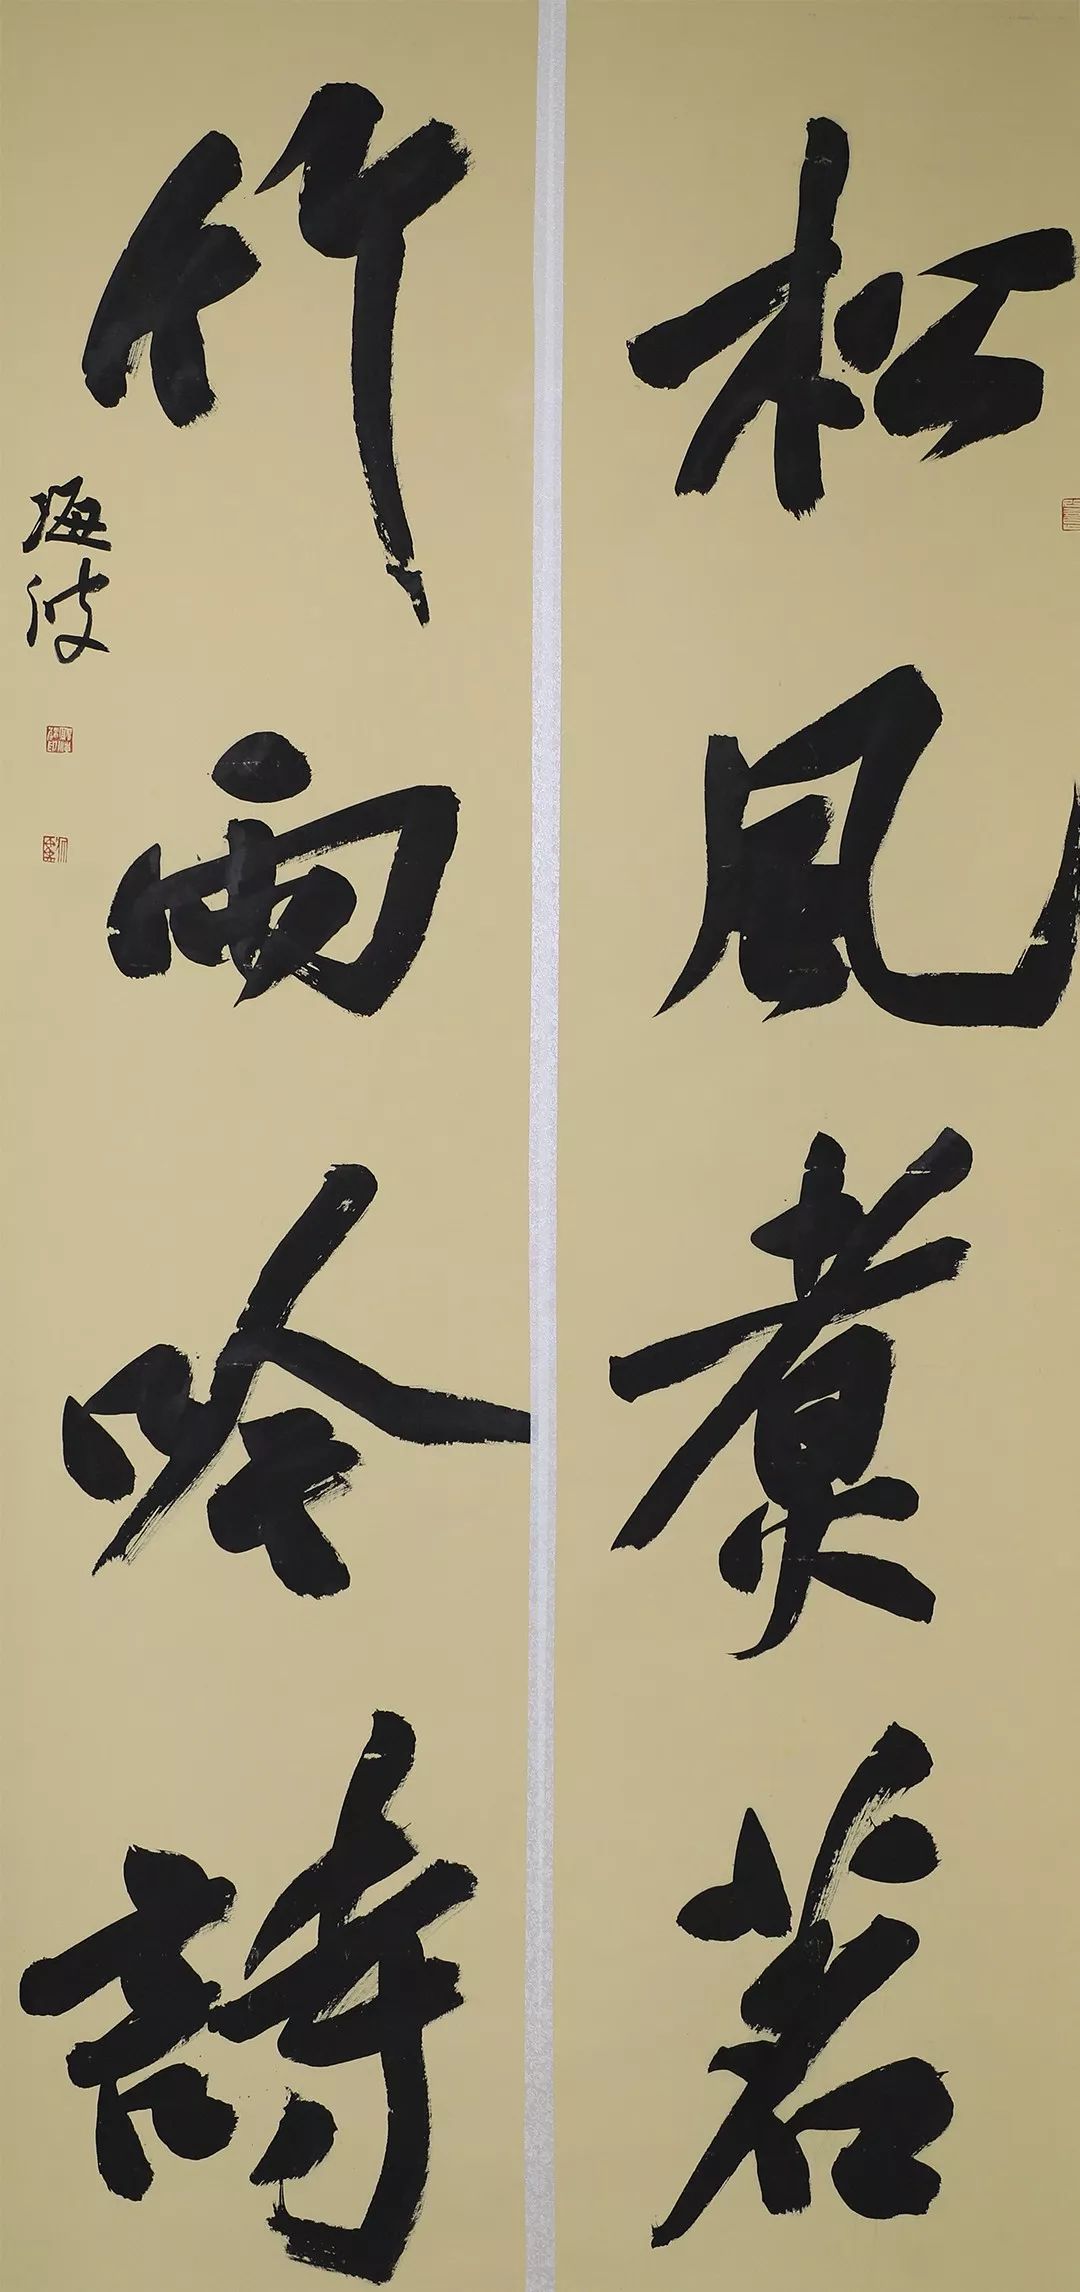 松风煮茗
竹雨吟詩
海波